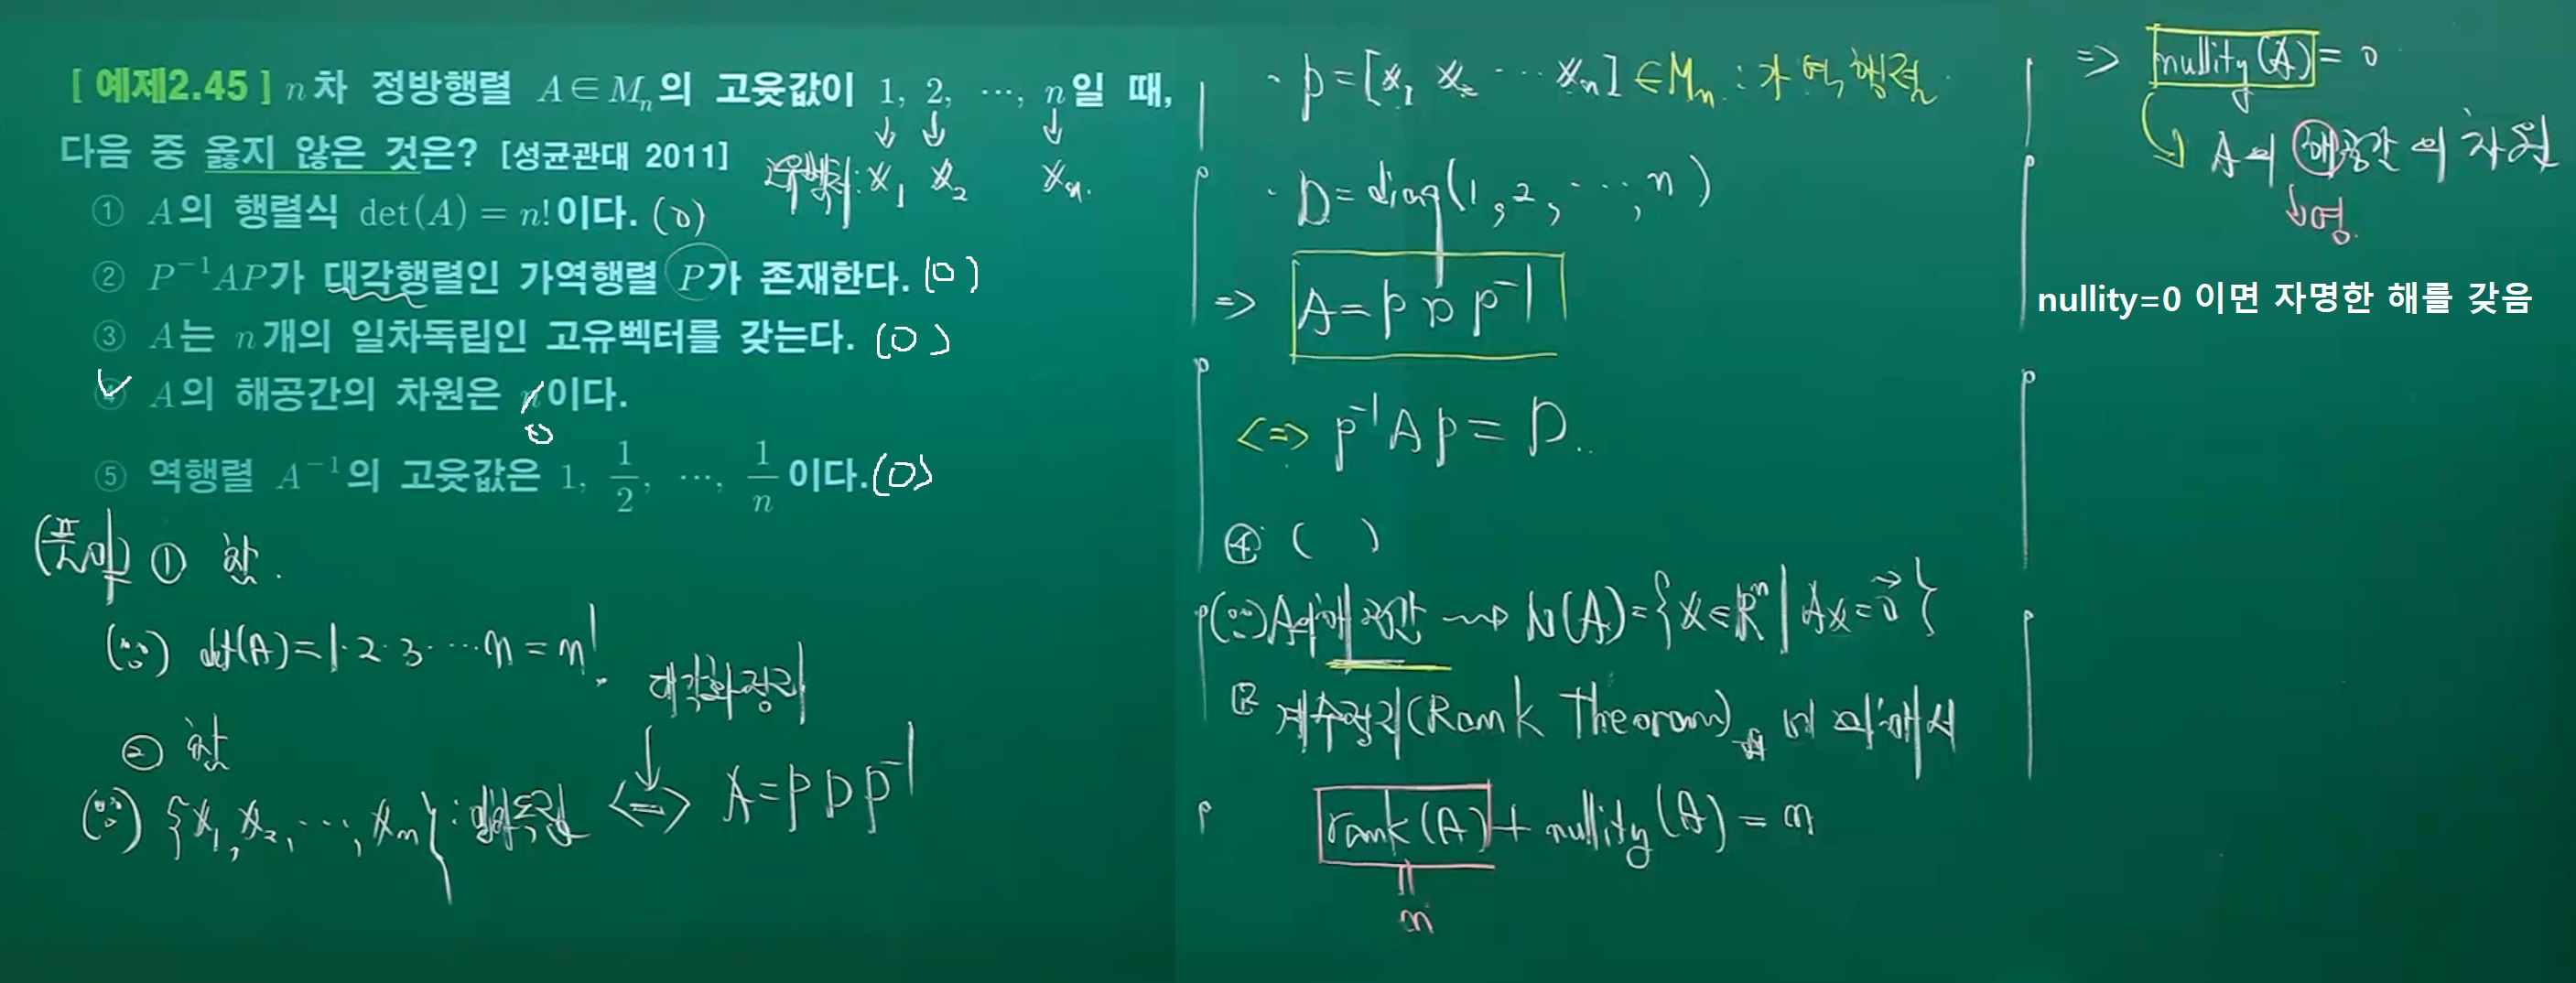 [ 예제2.45 ] n차 정방행렬 A∈Mₙ의 고윳값이 1, 2, ⋯, n일 때,
다음 중 옳지 않은 것은? [성균관대 2011]
고유벡터: x₁ x₂ xₙ.
① A의 행렬식 det(A) = n!이다. (○)
② P⁻¹AP가 대각행렬인 가역행렬 P가 존재한다. (○)
③ A는 n개의 일차독립인 고유벡터를 갖는다. (○)
④ A의 해공간의 차원은 n이다.
0
⑤ 역행렬 A⁻¹의 고윳값은 1, 1/2, ⋯, 1/n이다. (○)
(풀이) ① 참.
(∵) det(A)=1·2·3·⋯n = n!.
② 참
대각화정리
(∵) {x₁, x₂, ⋯, xₙ} : 일차독립 <=> A=PDP⁻¹
· P=[x₁ x₂ ⋯ xₙ]∈Mₙ : 가역행렬
· D=diag(1, 2, ⋯, n)
=> A=PDP⁻¹
<=> P⁻¹AP=D..
④ ( )
(∵) A의 해공간 ⇝ N(A)={x∈Rⁿ | Ax=0⃗}
계수정리(Rank Theorem)에 의해서
rank(A)+nullity(A)=n
n
=> nullity(A)=0
A의 해공간의 차원
↓영.
nullity=0 이면 자명한 해를 갖음